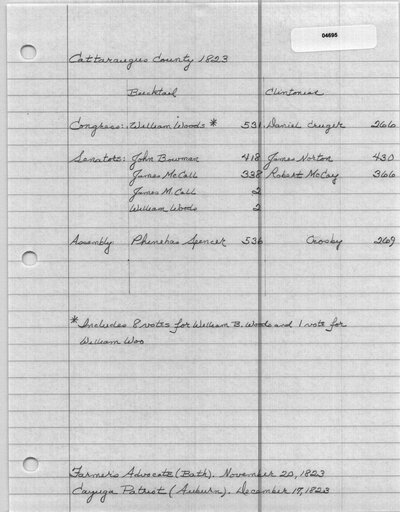 04695
Cattaraugus County 1823
Bucktail Clintonian
Congress: William Woods * 531 Daniel Cruger 266
Senators: John Bowman 418 James Norton 430
James McCall 338 Robert McCay 366
James M. Call 2
William Woods 2
Assembly Phinehas Spencer 536 Crosby 269
* Includes 8 votes for William B. Woods and 1 vote for
William Woo
Farmer's Advocate (Bath). November 20, 1823
Cayuga Patriot (Auburn). December 17, 1823